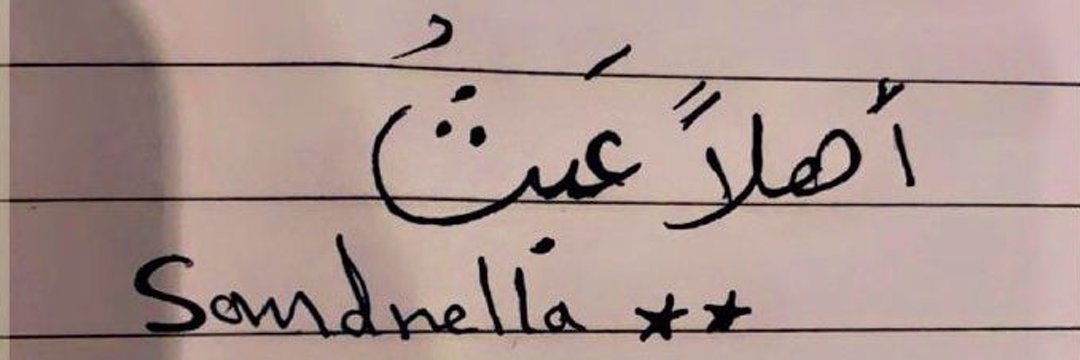 أهلاً عَبثُ
Sandrella ★★